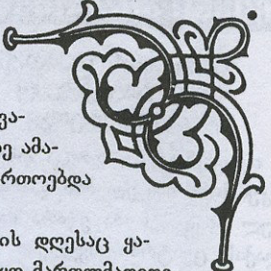 ვა-
ე ამა-
რთოებდა
ის დღესაც ყა-